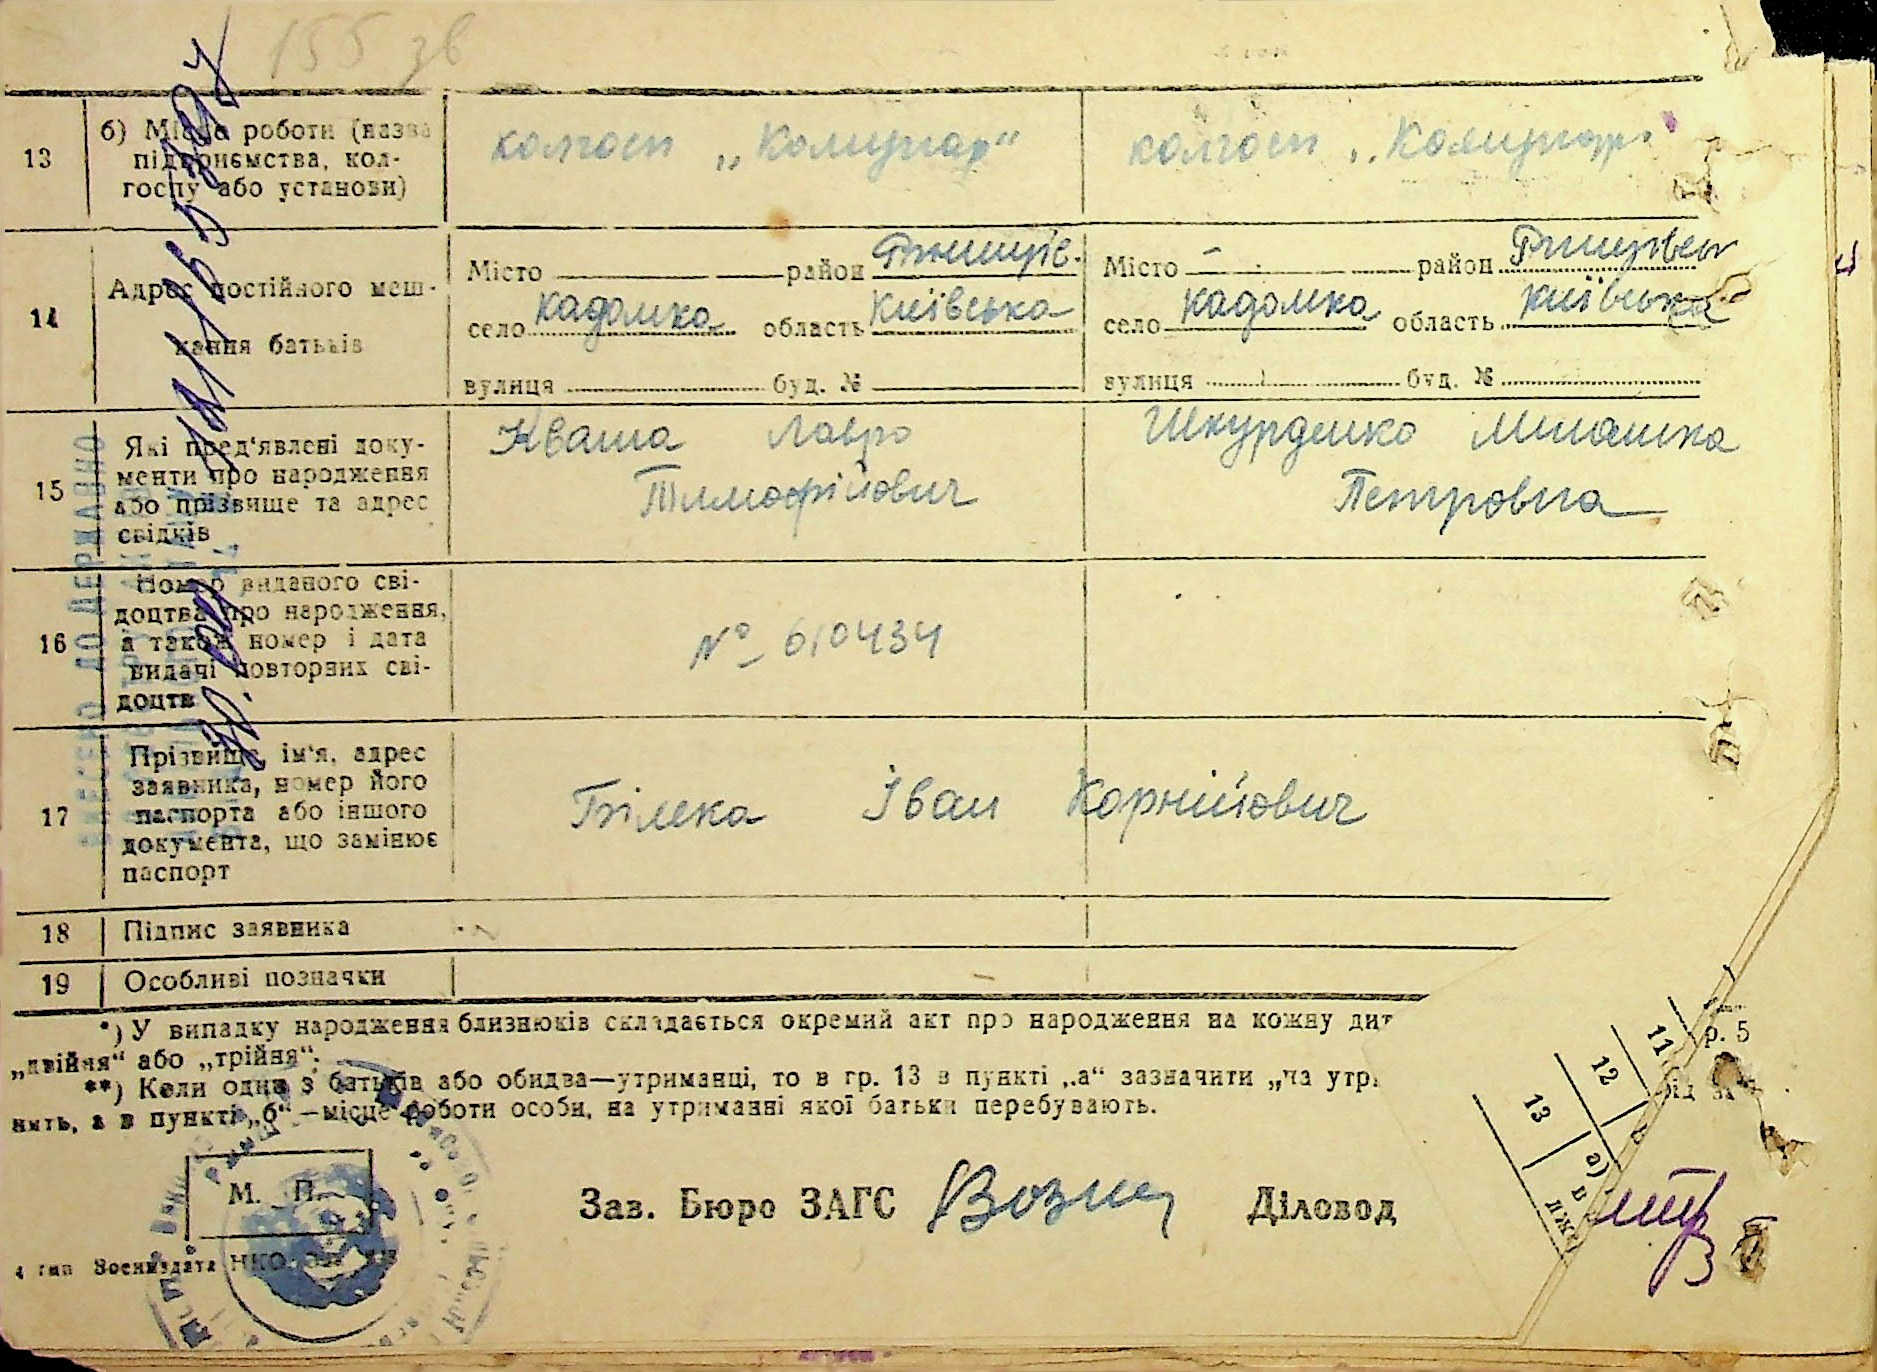 155 зв
13 б) Місце роботи (назва підприємства, колгоспу або установи)
колгосп „Комунар“ колгосп „Комунар“
14 Адрес постійного мешкання батьків
Місто район Ржищів. Місто район
село Кадомка область Київська село Кадомка область Київська
вулиця буд. № вулиця буд. №
15 Які пред‘явлені документи про народження або прізвище та адрес свідків
Кваша Лавро Шкурденко Милашка
Тимофійович Петровна
16 Номер виданого свідоцтва про народження, а також номер і дата видачі повторних свідоцтв
№ 610434
17 Прізвище, ім‘я, адрес заявника, номер його паспорта або іншого документа, що замінює паспорт
Іван Корнійович
18 Підпис заявника
19 Особливі позначки
*) У випадку народження близнюків складається окремий акт про народження на кожну дит
„двійня“ або „трійня“.
**) Коли один з батьків або обидва—утриманці, то в гр. 13 в пункті „а“ зазначити „на утри
нить, а в пункті „б“—місце роботи особи, на утриманні якої батьки перебувають.
М. П.
Зав. Бюро ЗАГС Діловод
4 тип Воениздата НКО
р. 5
11
12
13 а)